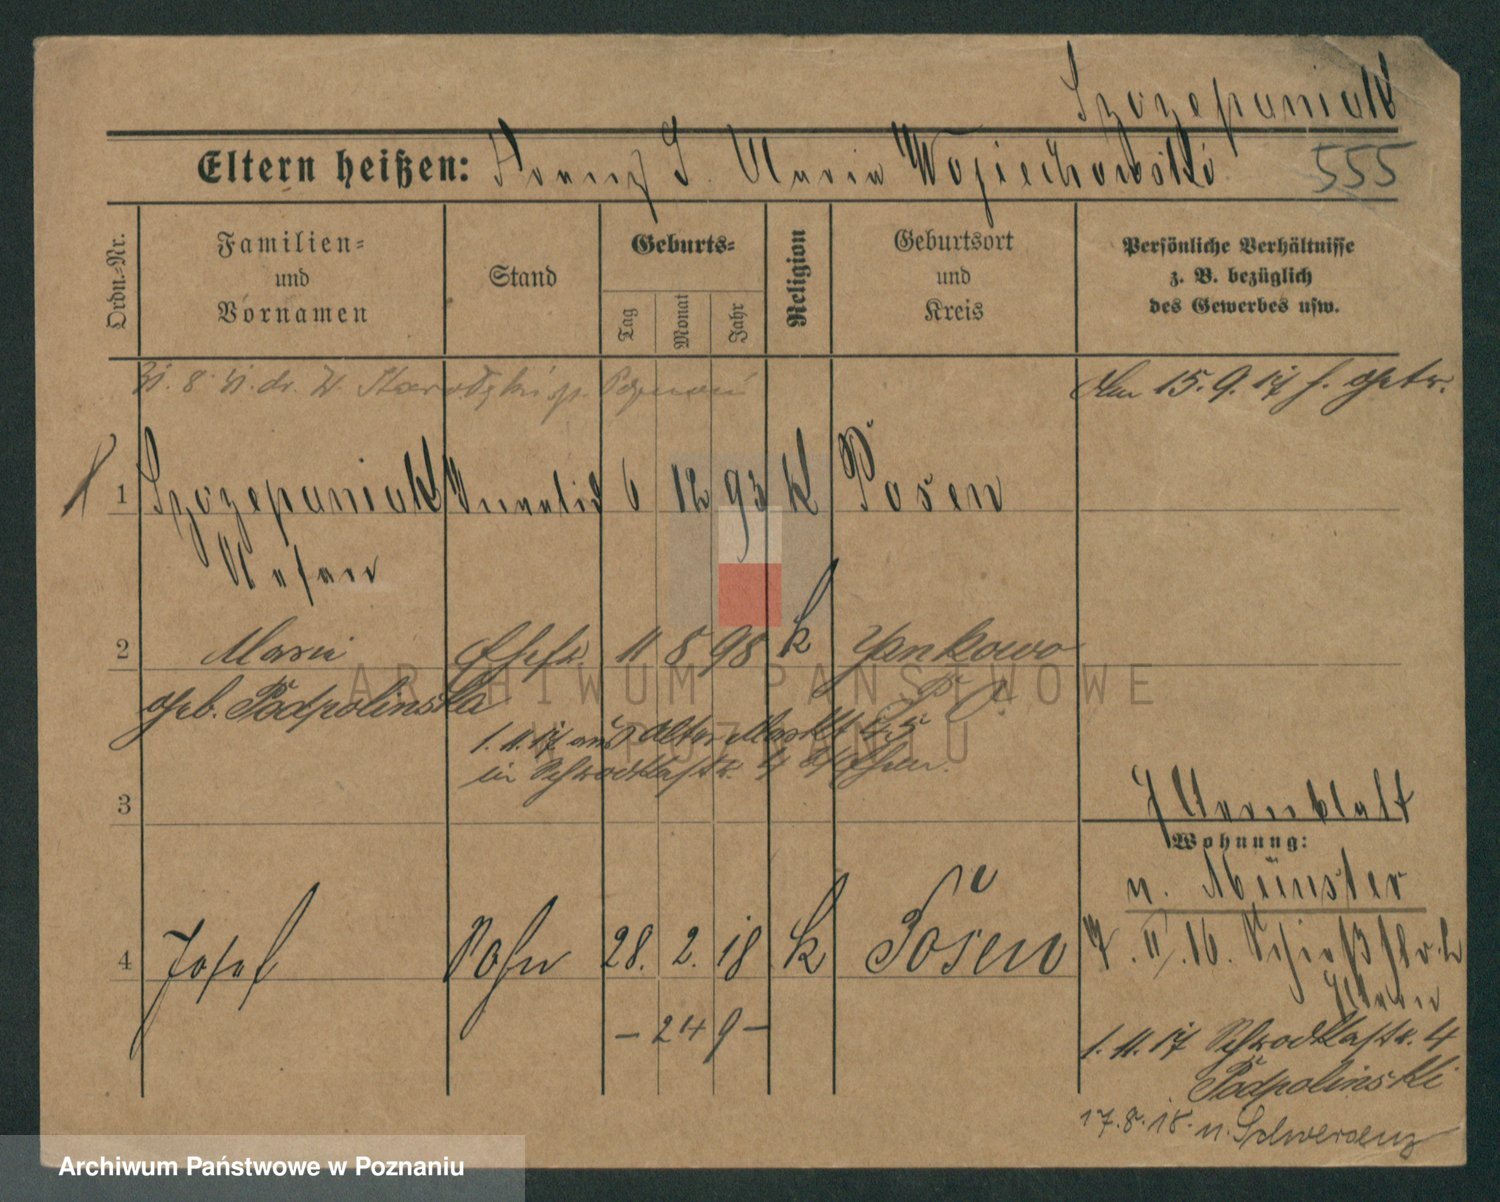 Szczepaniak
Eltern heißen: Franz J. Maria Wojciechowski
555
Ordn.-Nr.
Familien-
und
Vornamen
Stand
Geburts-
Tag
Monat
Jahr
Religion
Geburtsort
und
Kreis
Persönliche Verhältnisse
z. B. bezüglich
des Gewerbes usw.
15. 9. 17
1 Szczepaniak Invalid 6 12 93 k Posen
Stefan
2 Marie Ehefr 11 8 98 k Jankowo
geb. Podpolinska
1. 11. 17 aus Alter Markt
in Schrodkastr. 4
3
Elternblatt
Wohnung:
n. Münster
4 Josef Sohn 28. 2. 18 k Posen
7. II. 16. Schießstr.
Eltern
- 249 -
1. 11. 17 Schrodkastr. 4
Podpolinski
17. 8. 18. n. Schwersenz
ARCHIWUM PAŃSTWOWE
W POZNANIU
Archiwum Państwowe w Poznaniu